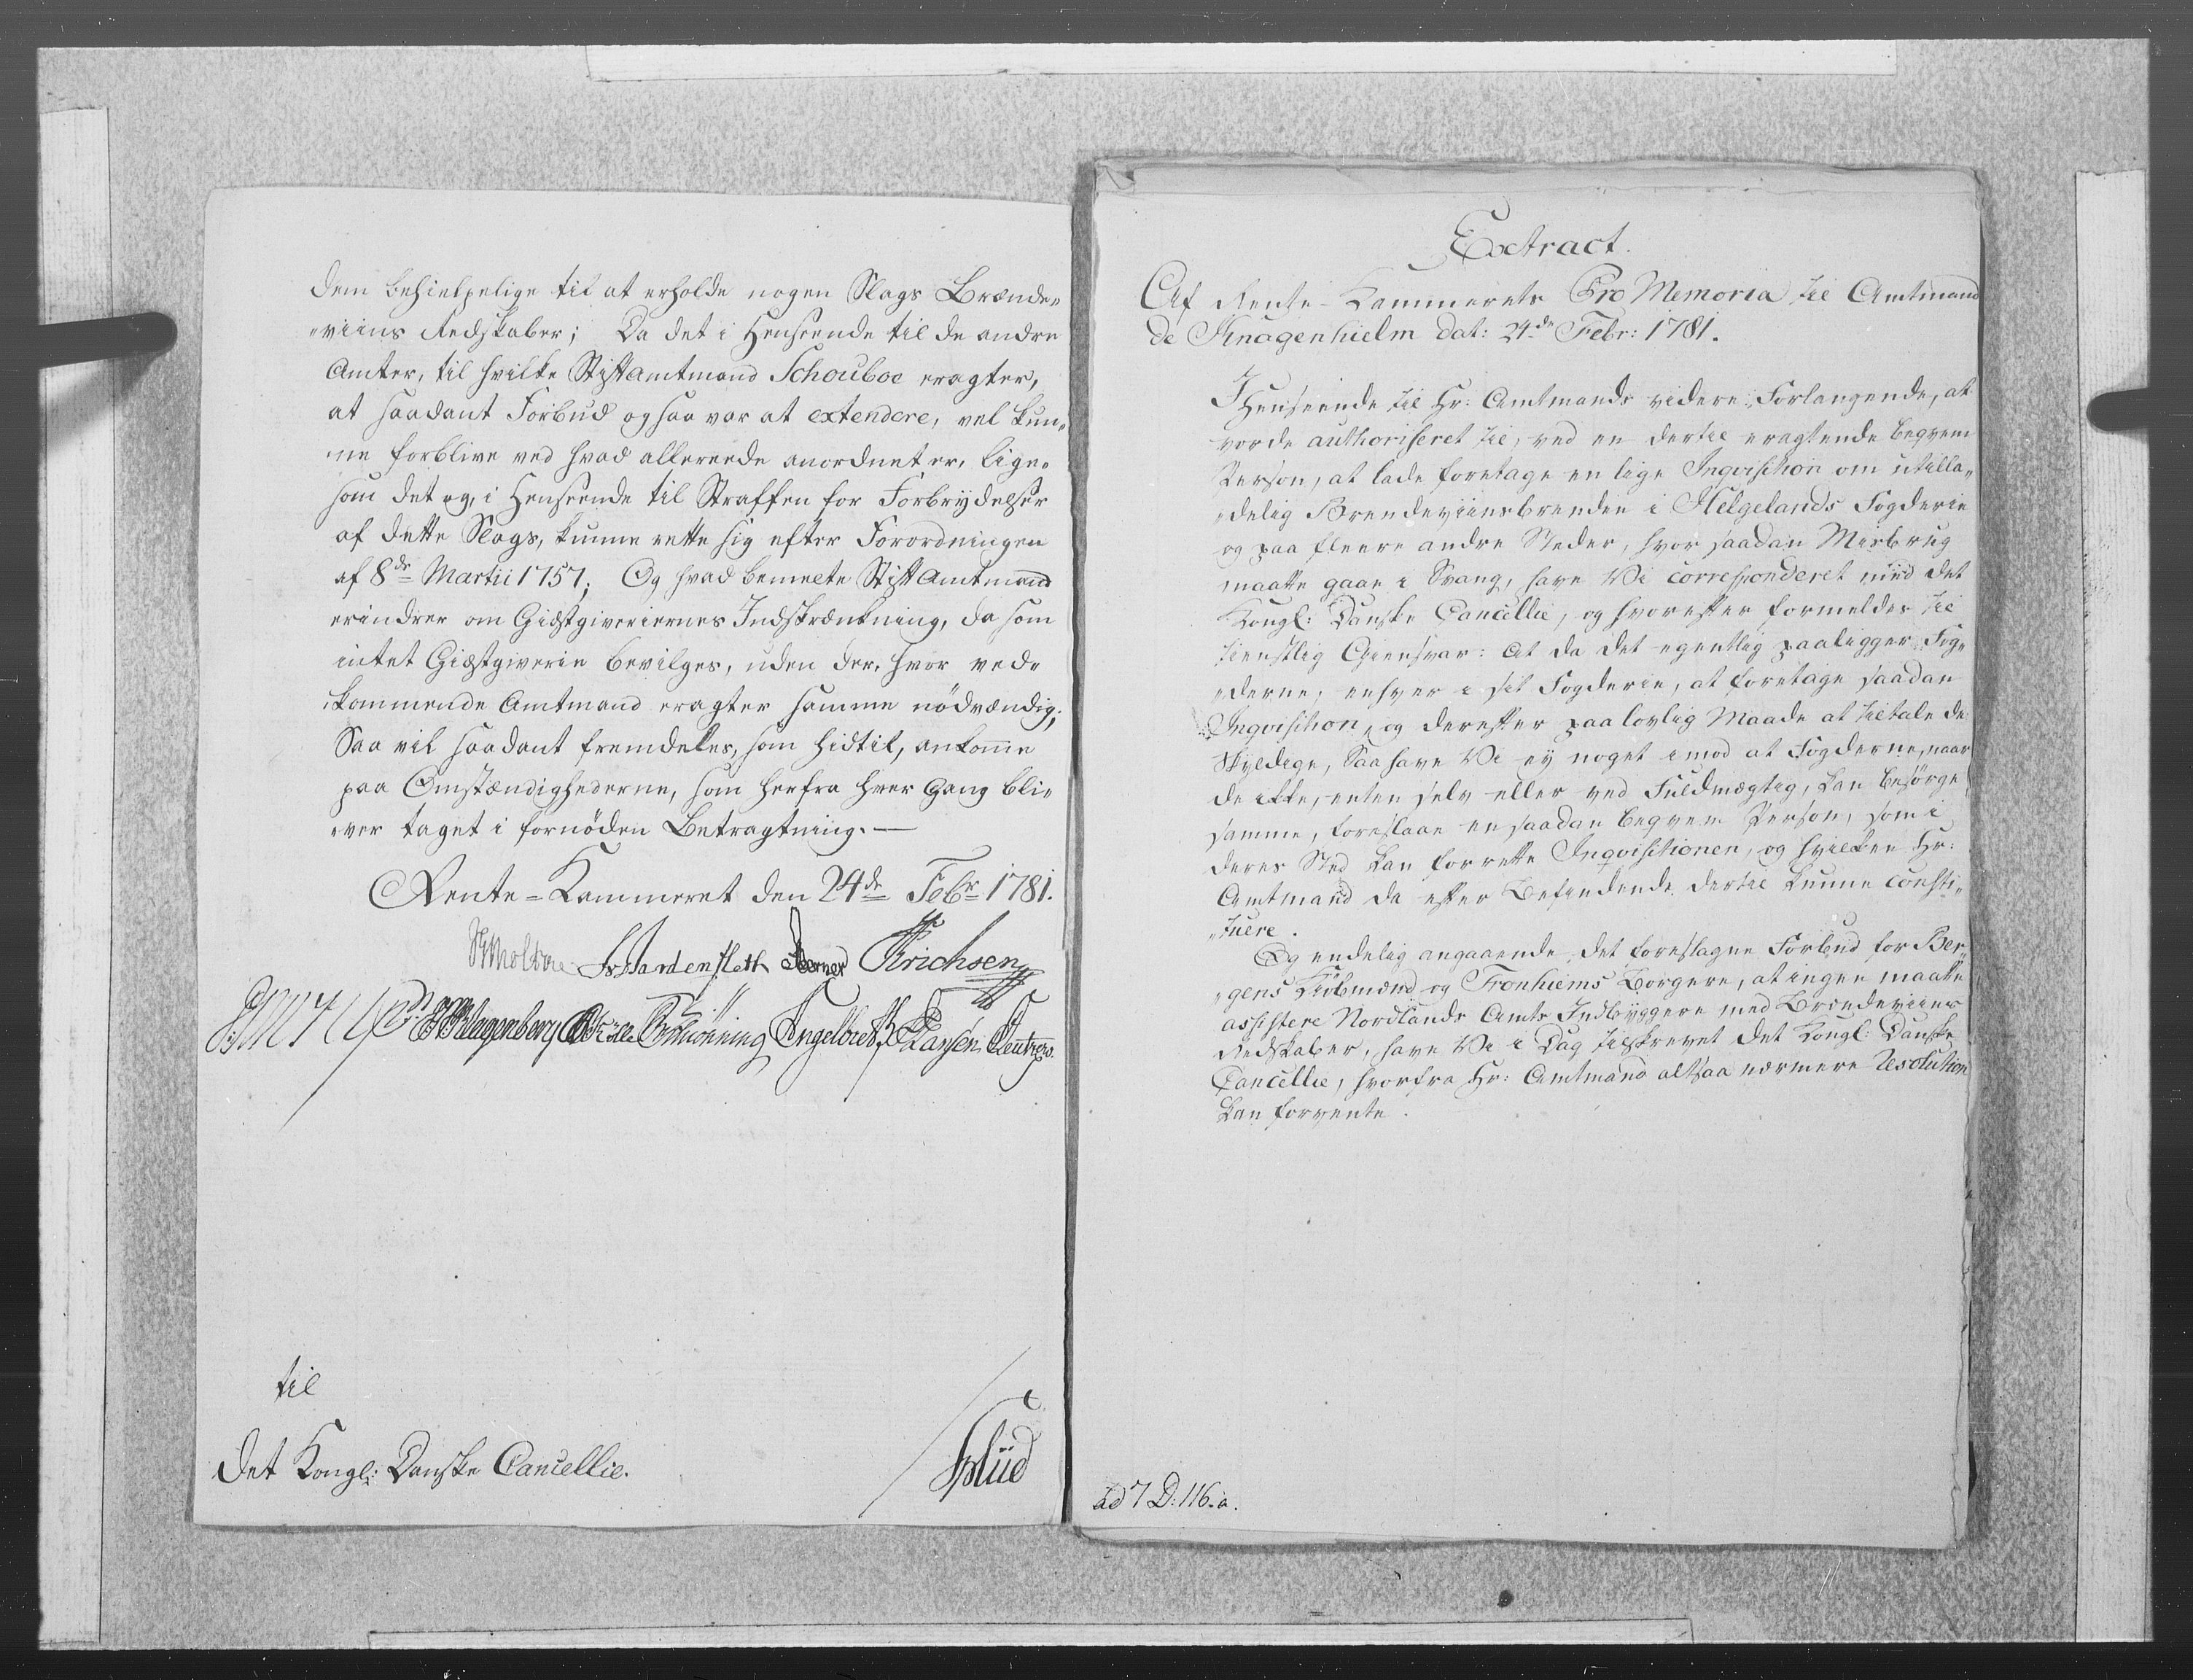 dem behielpelige til at erholde nogen Slags Brænde„
„viins Redskaber; Da det i Henseende til de andre
Amter, til hvilke Stiftamtmand Schouboe eragter,
at saadant Forbud ogsaa var at extendere, vel kun„
„ne forblive ved hvad allereede anordnet er, lige„
som det og, i Henseende til Straffen for Forbrydelser
af dette Slags, kunne rette sig efter Forordningen
af 8de Martii 1757; Og hvad bemeelte Stiftamtmand
erindrer om Giæstgiveriernes Indskrænkning, da som
intet Giæstgiverie bevilges, uden der, hvor ved„
„kommende Amtmand eragter samme nödvændig;
Saa vil saadant fremdeles, som hidtil, ankomme
paa Omstændighederne, som herfra hver Gang bli„
„ver taget i fornöden Betragtning.—
Rente-Kammeret den 24de Febr 1781.
Schmoltau Fr. Wardenskold Berner Erichsen
Klagenberg Schiønning Engelbreth Larsen
til
Det Kongl: Danske Cancellie.
Extract.
Af Rente-Kammerets Pro Memoria til Amtmand
de Knagenhielm dat: 24de Febr: 1781.
I Henseende til Hr: Amtmands videre Forlangende, at
vorde authoriseret til, ved en dertil eragtende beqvem
Person, at lade foretage en lige Inqvisition om utilla„
„delig Brendeviinsbrenden i Helgelands Fogderie
og paa fleere andre Steder, hvor saadan Misbrug
maatte gaae i Svang, have Vi correspondéret med det
Kongl: Danske Cancellie, og hvorefter formeldes til
tienstlig Giensvar: At da det egentlig paaligger Fog„
„derne, enhver i sit Fogderie, at foretage saadan
Inqvisition, og derefter paa lovlig Maade at tiltale de
Skyldige, Saa have Vi ey noget imod at Fogderne, naar
de ikke, enten selv eller ved Fuldmægtig, kan besörge
samme, foreslaae en saadan beqvem Person, som i
deres Sted kan forrette Inqvisitionen, og hvilken Hr:
Amtmand da efter Befindende dertil kunne consti„
„tuere.
Og endelig angaaende det foreslagne Forbud for Ber„
„gens Kiöbmænd og Tronhiems Borgere, at ingen maatte
assistere Nordlands Amts Indbyggere med Brændeviins
Redskaber, have Vi i Dag tilskrevet det Kongl: Danske
Cancellie, hvorfra Hr: Amtmand altsaa nærmere Resolution
kan forvente.
ad 7 D: 116. a.